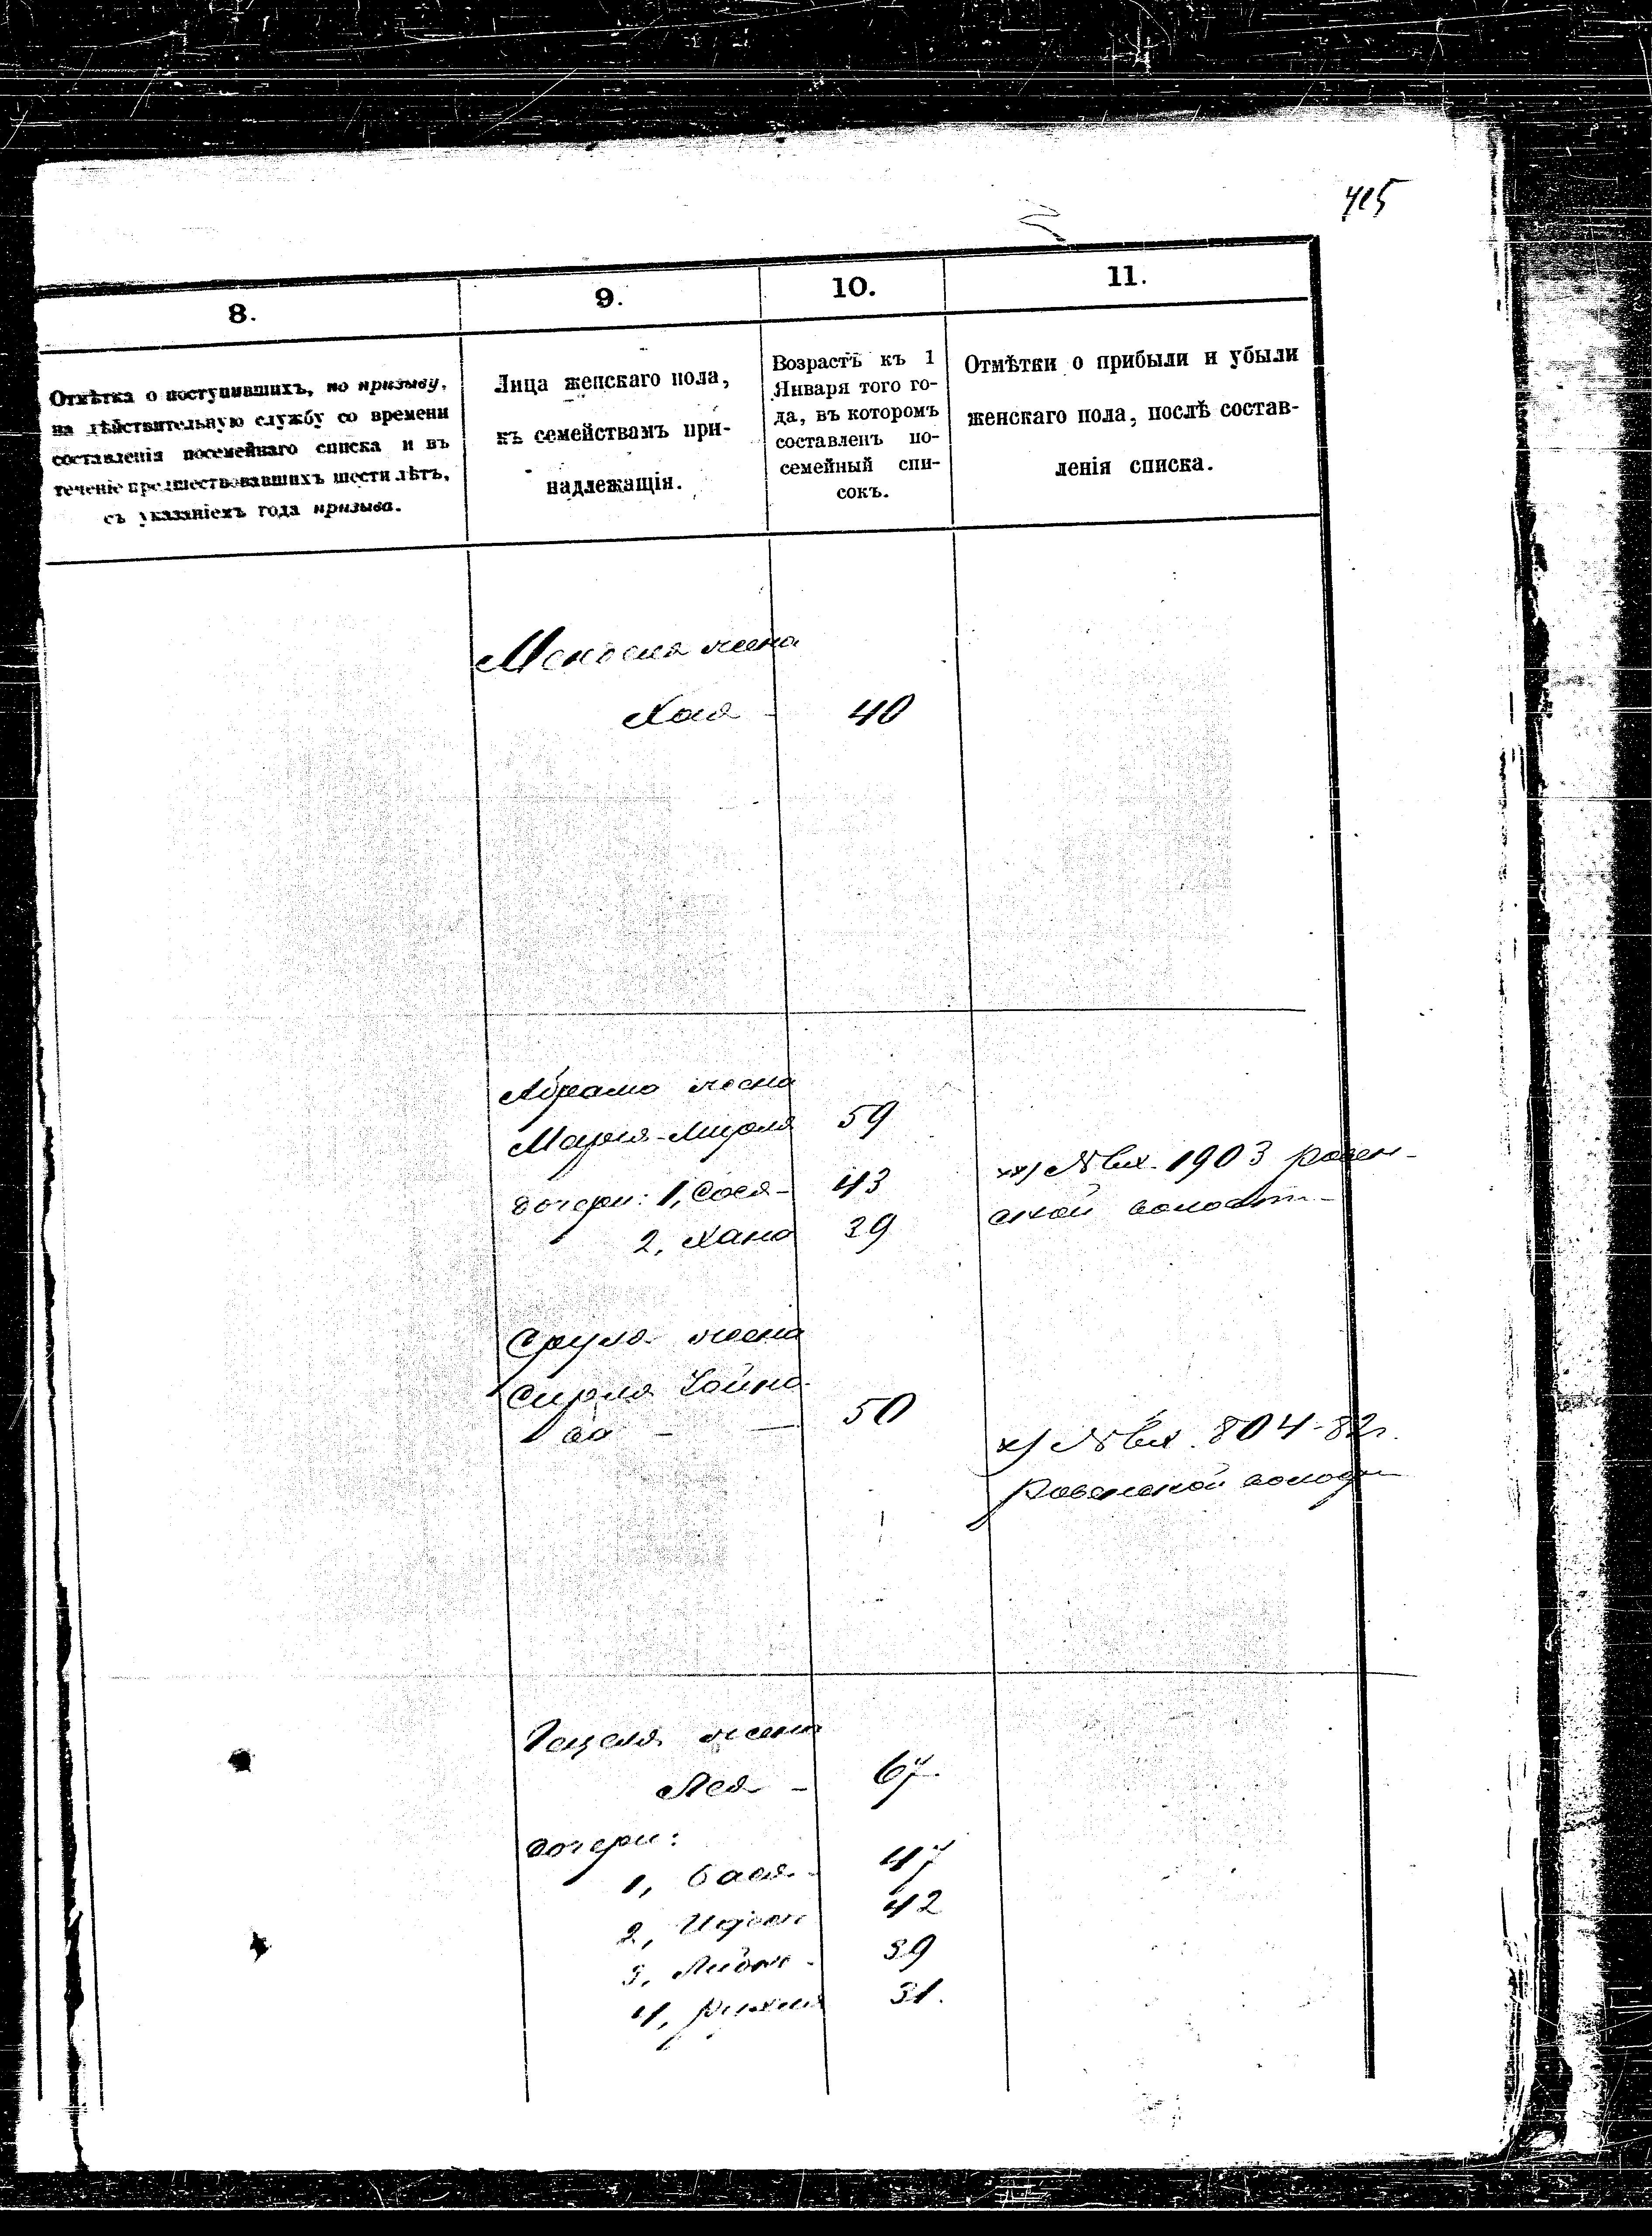 415
8.
9.
10.
11.
Отмѣтка о поступившихъ, по призыву,
на дѣйствительную службу со времени
составленія посемейнаго списка и въ
теченіе предшествовавшихъ шести лѣтъ,
съ указаніемъ года призыва.
Лица женскаго пола,
къ семействамъ при-
надлежащія.
Возрастъ къ 1
Января того го-
да, въ которомъ
составленъ по-
семейный спи-
сокъ.
Отмѣтки о прибыли и убыли
женскаго пола, послѣ состав-
ленія списка.
жена
Хая - 40
Абрама жена
Марья- 59
дочери: 1, Сося- 43
2, Хана 39
хх) № вх. 1903 ровен-
ской волости
Сруля жена
Сирля
ва - — 50
х) № вх. 804-82г.
Ровенской волости
Гецеля жена
Лея - 67.
дочери:
1, Бася - 47
2, 42
3, 39
4, 31.